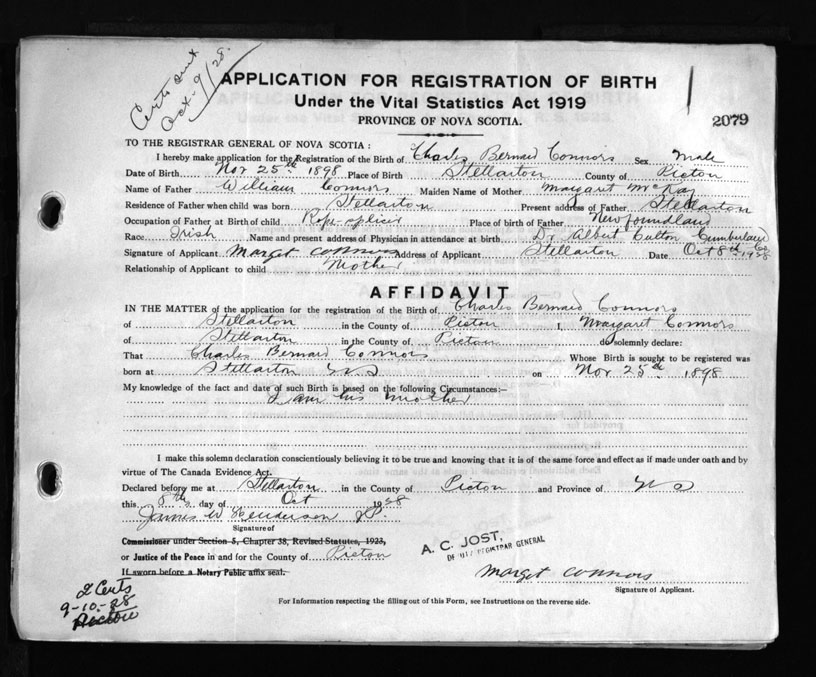 Certs sent
Oct. 9/28.
APPLICATION FOR REGISTRATION OF BIRTH
Under the Vital Statistics Act 1919
PROVINCE OF NOVA SCOTIA.
2079
TO THE REGISTRAR GENERAL OF NOVA SCOTIA :
I hereby make application for the Registration of the Birth of Charles Bernard Connors Sex Male
Date of Birth Nov 25th 1898 Place of Birth Stellarton County of Picton
Name of Father William Connors Maiden Name of Mother Margaret McKay
Residence of Father when child was born Stellarton Present address of Father Stellarton
Occupation of Father at Birth of child Rope-splicer Place of birth of Father Newfoundland
Race Irish Name and present address of Physician in attendance at birth Dr Albert Culton Cumberland Co
Signature of Applicant Marget Connors Address of Applicant Stellarton Date Oct 8th 1928
Relationship of Applicant to child Mother
AFFIDAVIT
IN THE MATTER of the application for the registration of the Birth of Charles Bernard Connors
of Stellarton in the County of Picton I, Margaret Connors
of Stellarton in the County of Picton do solemnly declare:
That Charles Bernard Connors Whose Birth is sought to be registered was
born at Stellarton N.S on Nov 25th 1898
My knowledge of the fact and date of such Birth is based on the following Circumstances:—
I am his mother
I make this solemn declaration conscientiously believing it to be true and knowing that it is of the same force and effect as if made under oath and by
virtue of The Canada Evidence Act.
Declared before me at Stellarton in the County of Picton and Province of N S
this 8th day of Oct 1928
James W Henderson J.P.
Signature of
Commissioner under Section 5, Chapter 38, Revised Statutes, 1923,
or Justice of the Peace in and for the County of Picton
If sworn before a Notary Public affix seal.
A. C. JOST,
DEPUTY REGISTRAR GENERAL
Marget Connors
Signature of Applicant.
2 Certs
9-10-28
For Information respecting the filling out of this Form, see Instructions on the reverse side.